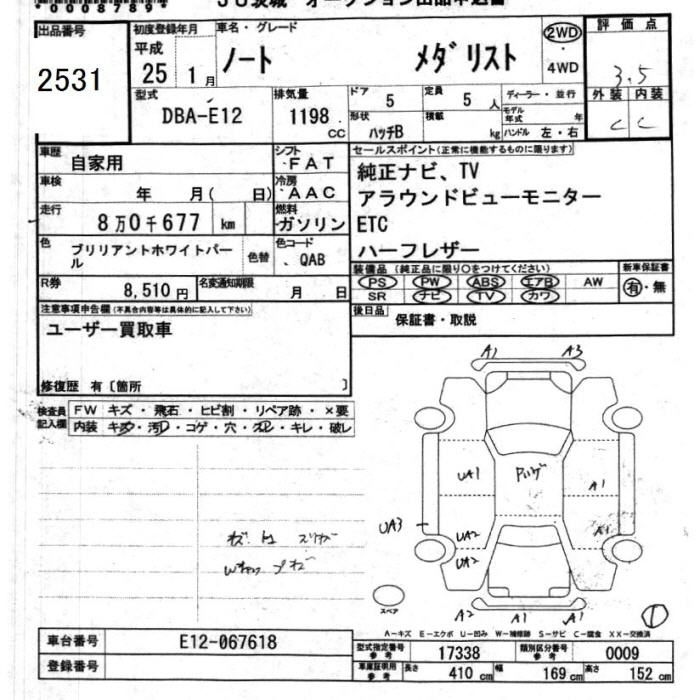 00087897
JU茨城 オークション出品申込書
出品番号
2531
初度登録年月
平成
25 1月
車名・グレード
ノート メダリスト
2WD
・
4WD
評価点
3.5
外装 内装
C C
型式
DBA-E12
排気量
1198 cc
ドア
5
定員
5 人
ディーラー・並行
形状
ハッチB
積載
kg
モデル年式 年
ハンドル 左・右
車歴
自家用
シフト
FAT
車検
年 月( 日)
冷房
AAC
走行
8万0千677 km
燃料
ガソリン
色
ブリリアントホワイトパール
色替
色コード
QAB
R券
8,510円
名変通知期限
月 日
セールスポイント(正常に機能するものに限ります)
純正ナビ、TV
アラウンドビューモニター
ETC
ハーフレザー
装備品 (純正品に限り○をつけてください)
新車保証書
PS PW ABS エアB AW
SR ナビ TV カワ
有・無
後日品
保証書・取説
注意事項申告欄(不具合内容等は具体的に記入して下さい)
ユーザー買取車
修復歴 有〔箇所 〕
検査員記入欄
FW キズ・飛石・ヒビ割・リペア跡・×要
内装 キズ・汚レ・コゲ・穴・スレ・キレ・破レ
A1 A3
UA1
A1
UA3
UA2
UA2
A2 A1 A1
スペア
1
A-キズ E-エクボ U-凹み W-補修跡 S-サビ C-腐食 XX-交換済
車台番号
E12-067618
登録番号
型式指定番号
参考
17338
類別区分番号
参考
0009
車庫証明用
参考
長さ
410 cm
幅
169 cm
高さ
152 cm